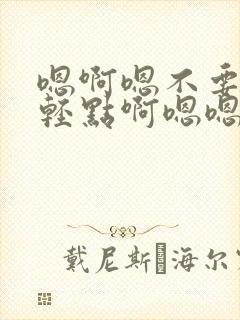 嗯啊嗯不要
轻點啊嗯嗯
戴尼斯·海尔